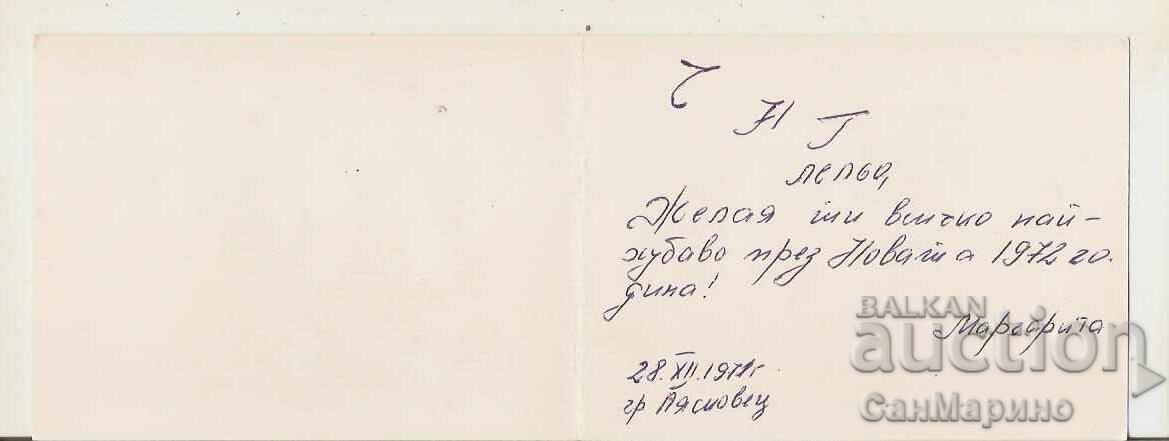 Ч
Н Г
лельо,
Желая ти всичко най-
хубаво през Новата 1972 го-
дина!
Маргарита
28.XII.1971г
гр Лясковец
BALKAN
auction
СанМарино